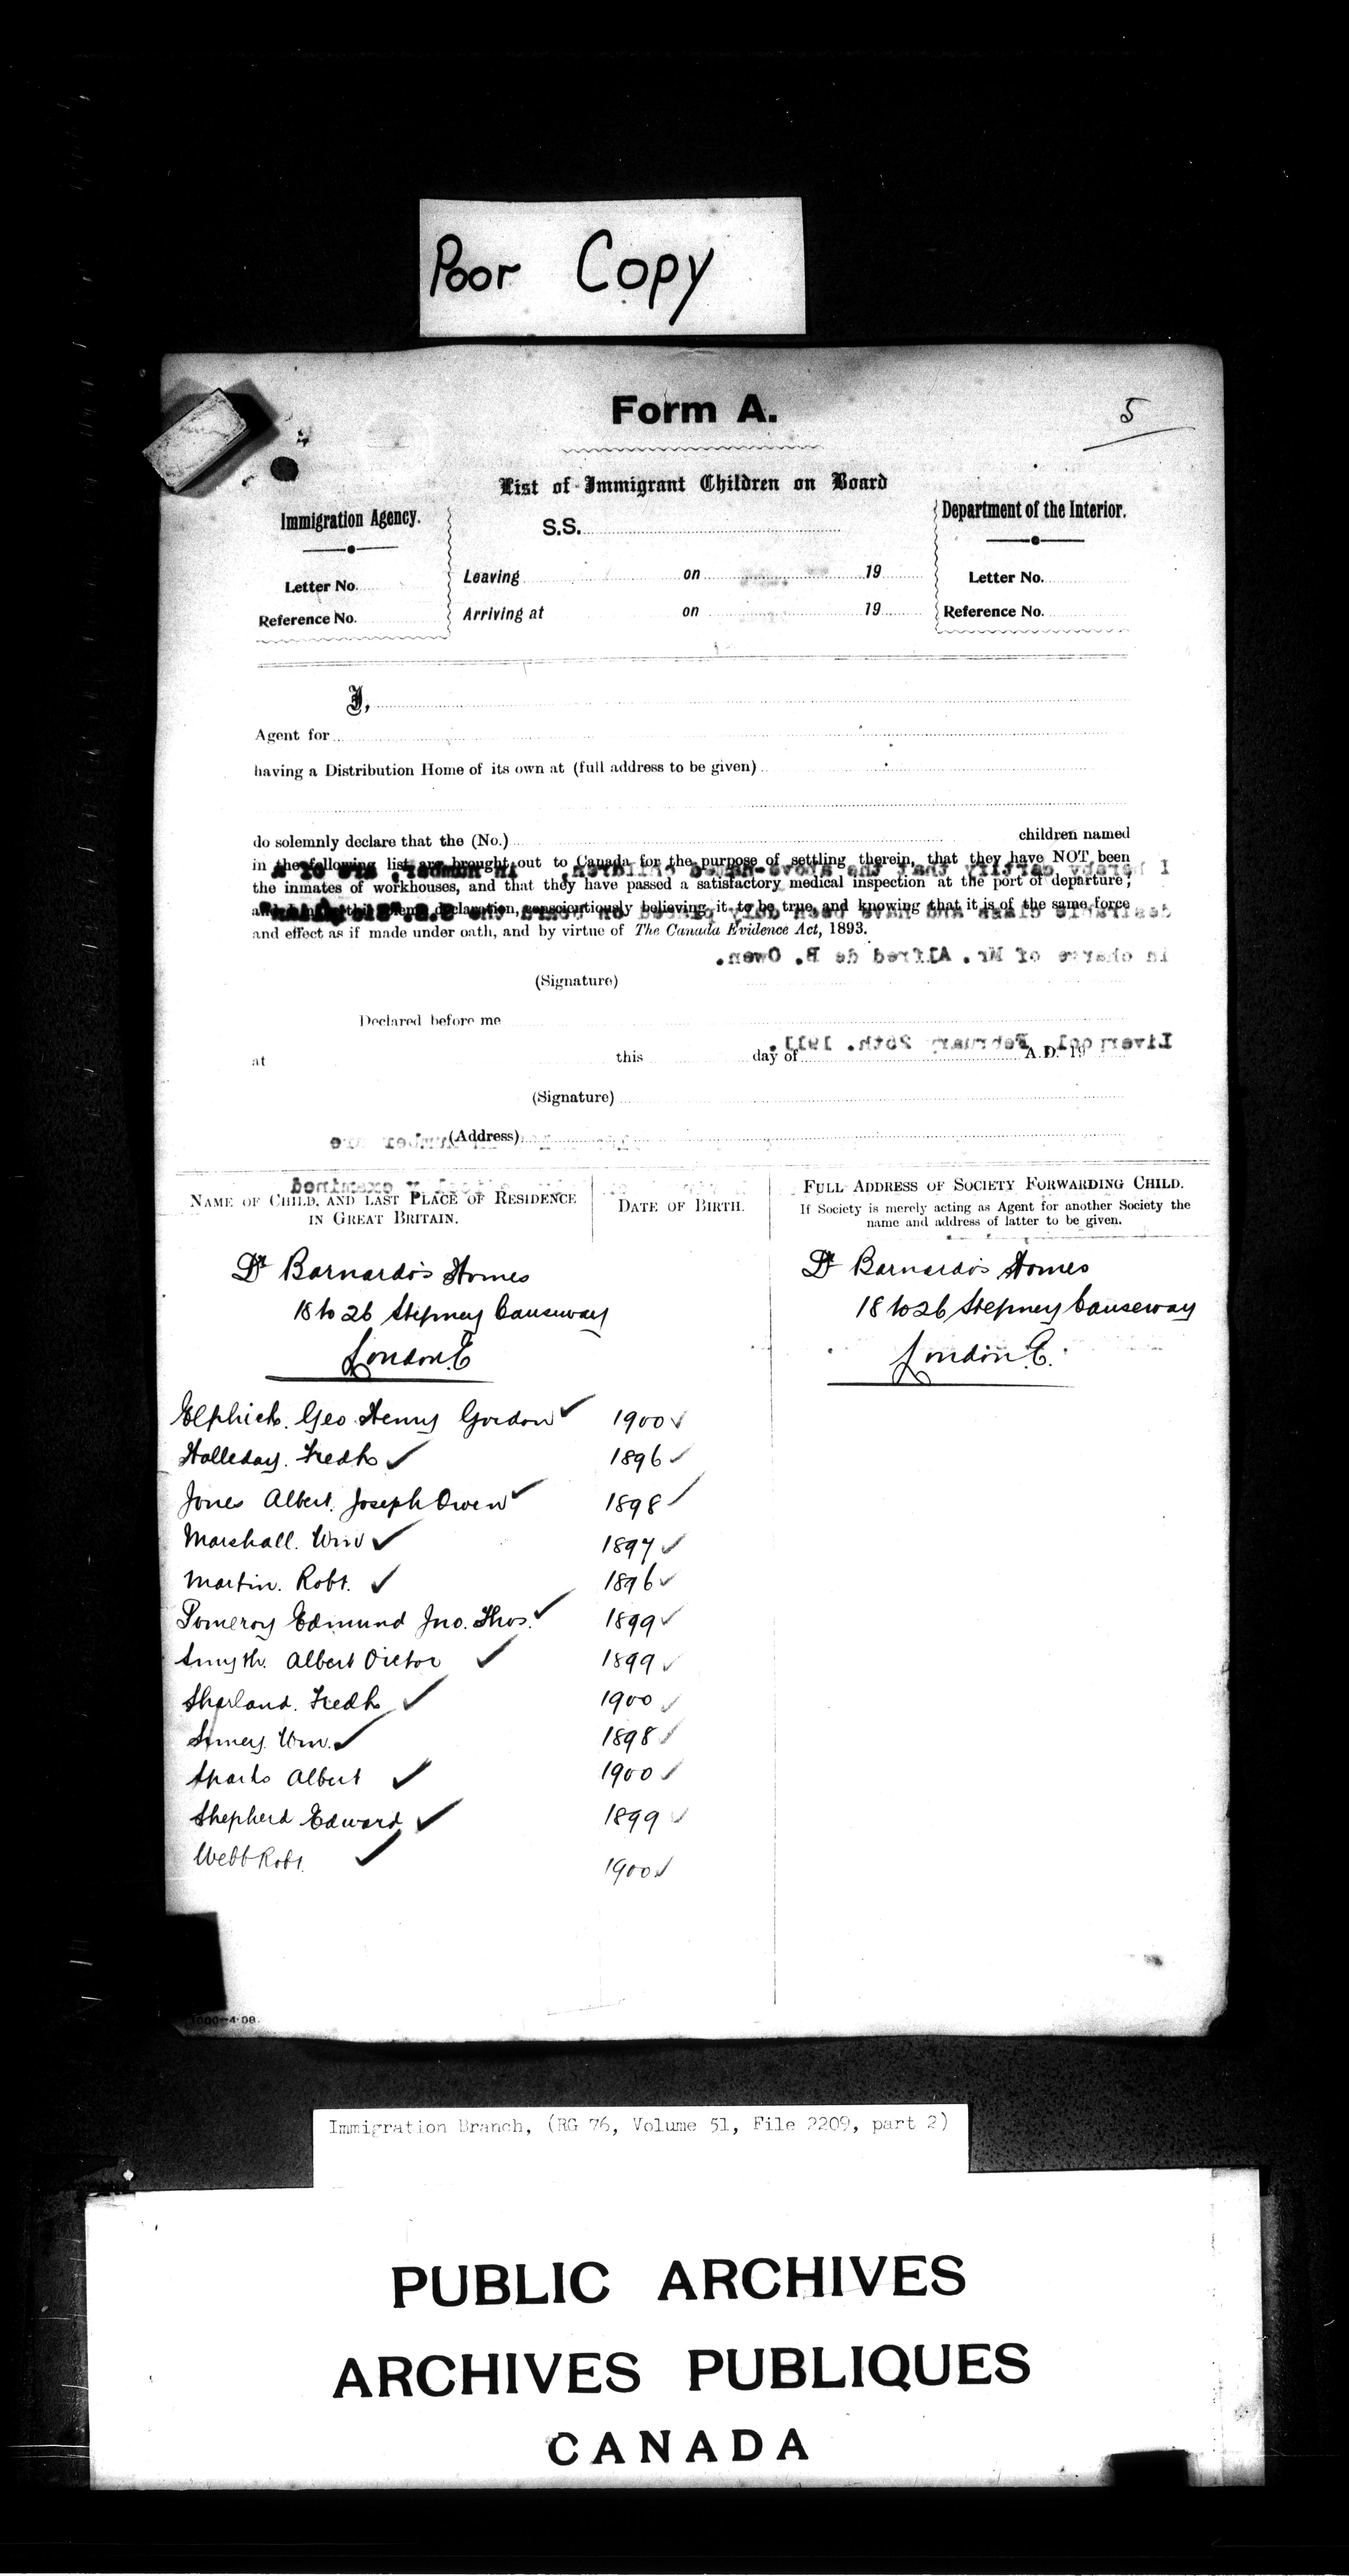 Poor Copy
Form A.
5
List of Immigrant Children on Board
Immigration Agency.
S.S.
Department of the Interior.
Letter No.
Leaving on 19
Letter No.
Reference No.
Arriving at on 19
Reference No.
I,
Agent for
having a Distribution Home of its own at (full address to be given)
do solemnly declare that the (No.) children named
in the following list are brought out to Canada for the purpose of settling therein, that they have NOT been
I hereby certify that the above-named children, in number, are of a
the inmates of workhouses, and that they have passed a satisfactory medical inspection at the port of departure;
and this solemn declaration, conscientiously believing it to be true, and knowing that it is of the same force
desirable class and have been duly placed on board the S.S.
and effect as if made under oath, and by virtue of The Canada Evidence Act, 1893.
in charge of Mr. Alfred de B. Owen.
(Signature)
Declared before me
Liverpool, February 26th. 1911.
at this day of A.D. 19
(Signature)
(Address)
number are
examined
NAME OF CHILD, AND LAST PLACE OF RESIDENCE
IN GREAT BRITAIN.
DATE OF BIRTH.
FULL ADDRESS OF SOCIETY FORWARDING CHILD.
If Society is merely acting as Agent for another Society the
name and address of latter to be given.
Dr Barnardo's Homes
18 to 26 Stepney Causeway
London. E
Dr Barnardo's Homes
18 to 26 Stepney Causeway
London. E.
Elphick. Geo Henry Gordon ✓ 1900 ✓
Halleday. Fredk ✓ 1896 ✓
Jones Albert. Joseph Owen ✓ 1898 ✓
Marshall. Wm ✓ 1897 ✓
Martin. Robt. ✓ 1896 ✓
Pomeroy Edmund Jno. Thos. ✓ 1899 ✓
Smyth. Albert Victor ✓ 1899 ✓
Sharland. Fredk ✓ 1900 ✓
Wm. ✓ 1898 ✓
Sparks Albert ✓ 1900 ✓
Shepherd Edward ✓ 1899 ✓
Webb Robt. ✓ 1900 ✓
000-4-08.
Immigration Branch, (RG 76, Volume 51, File 2209, part 2)
PUBLIC ARCHIVES
ARCHIVES PUBLIQUES
CANADA